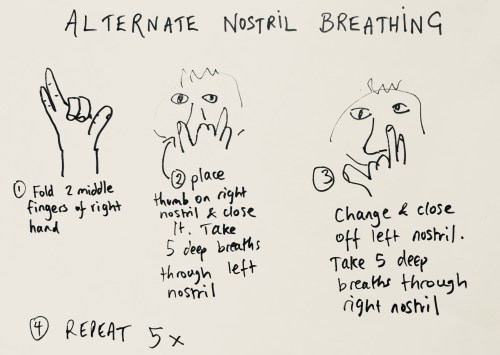 ALTERNATE NOSTRIL BREATHING
① Fold 2 middle
fingers of right
hand
② place
thumb on right
nostril & close
It. Take
5 deep breaths
through left
nostril
③
Change & close
off left nostril.
Take 5 deep
breaths through
right nostril
④ REPEAT 5x